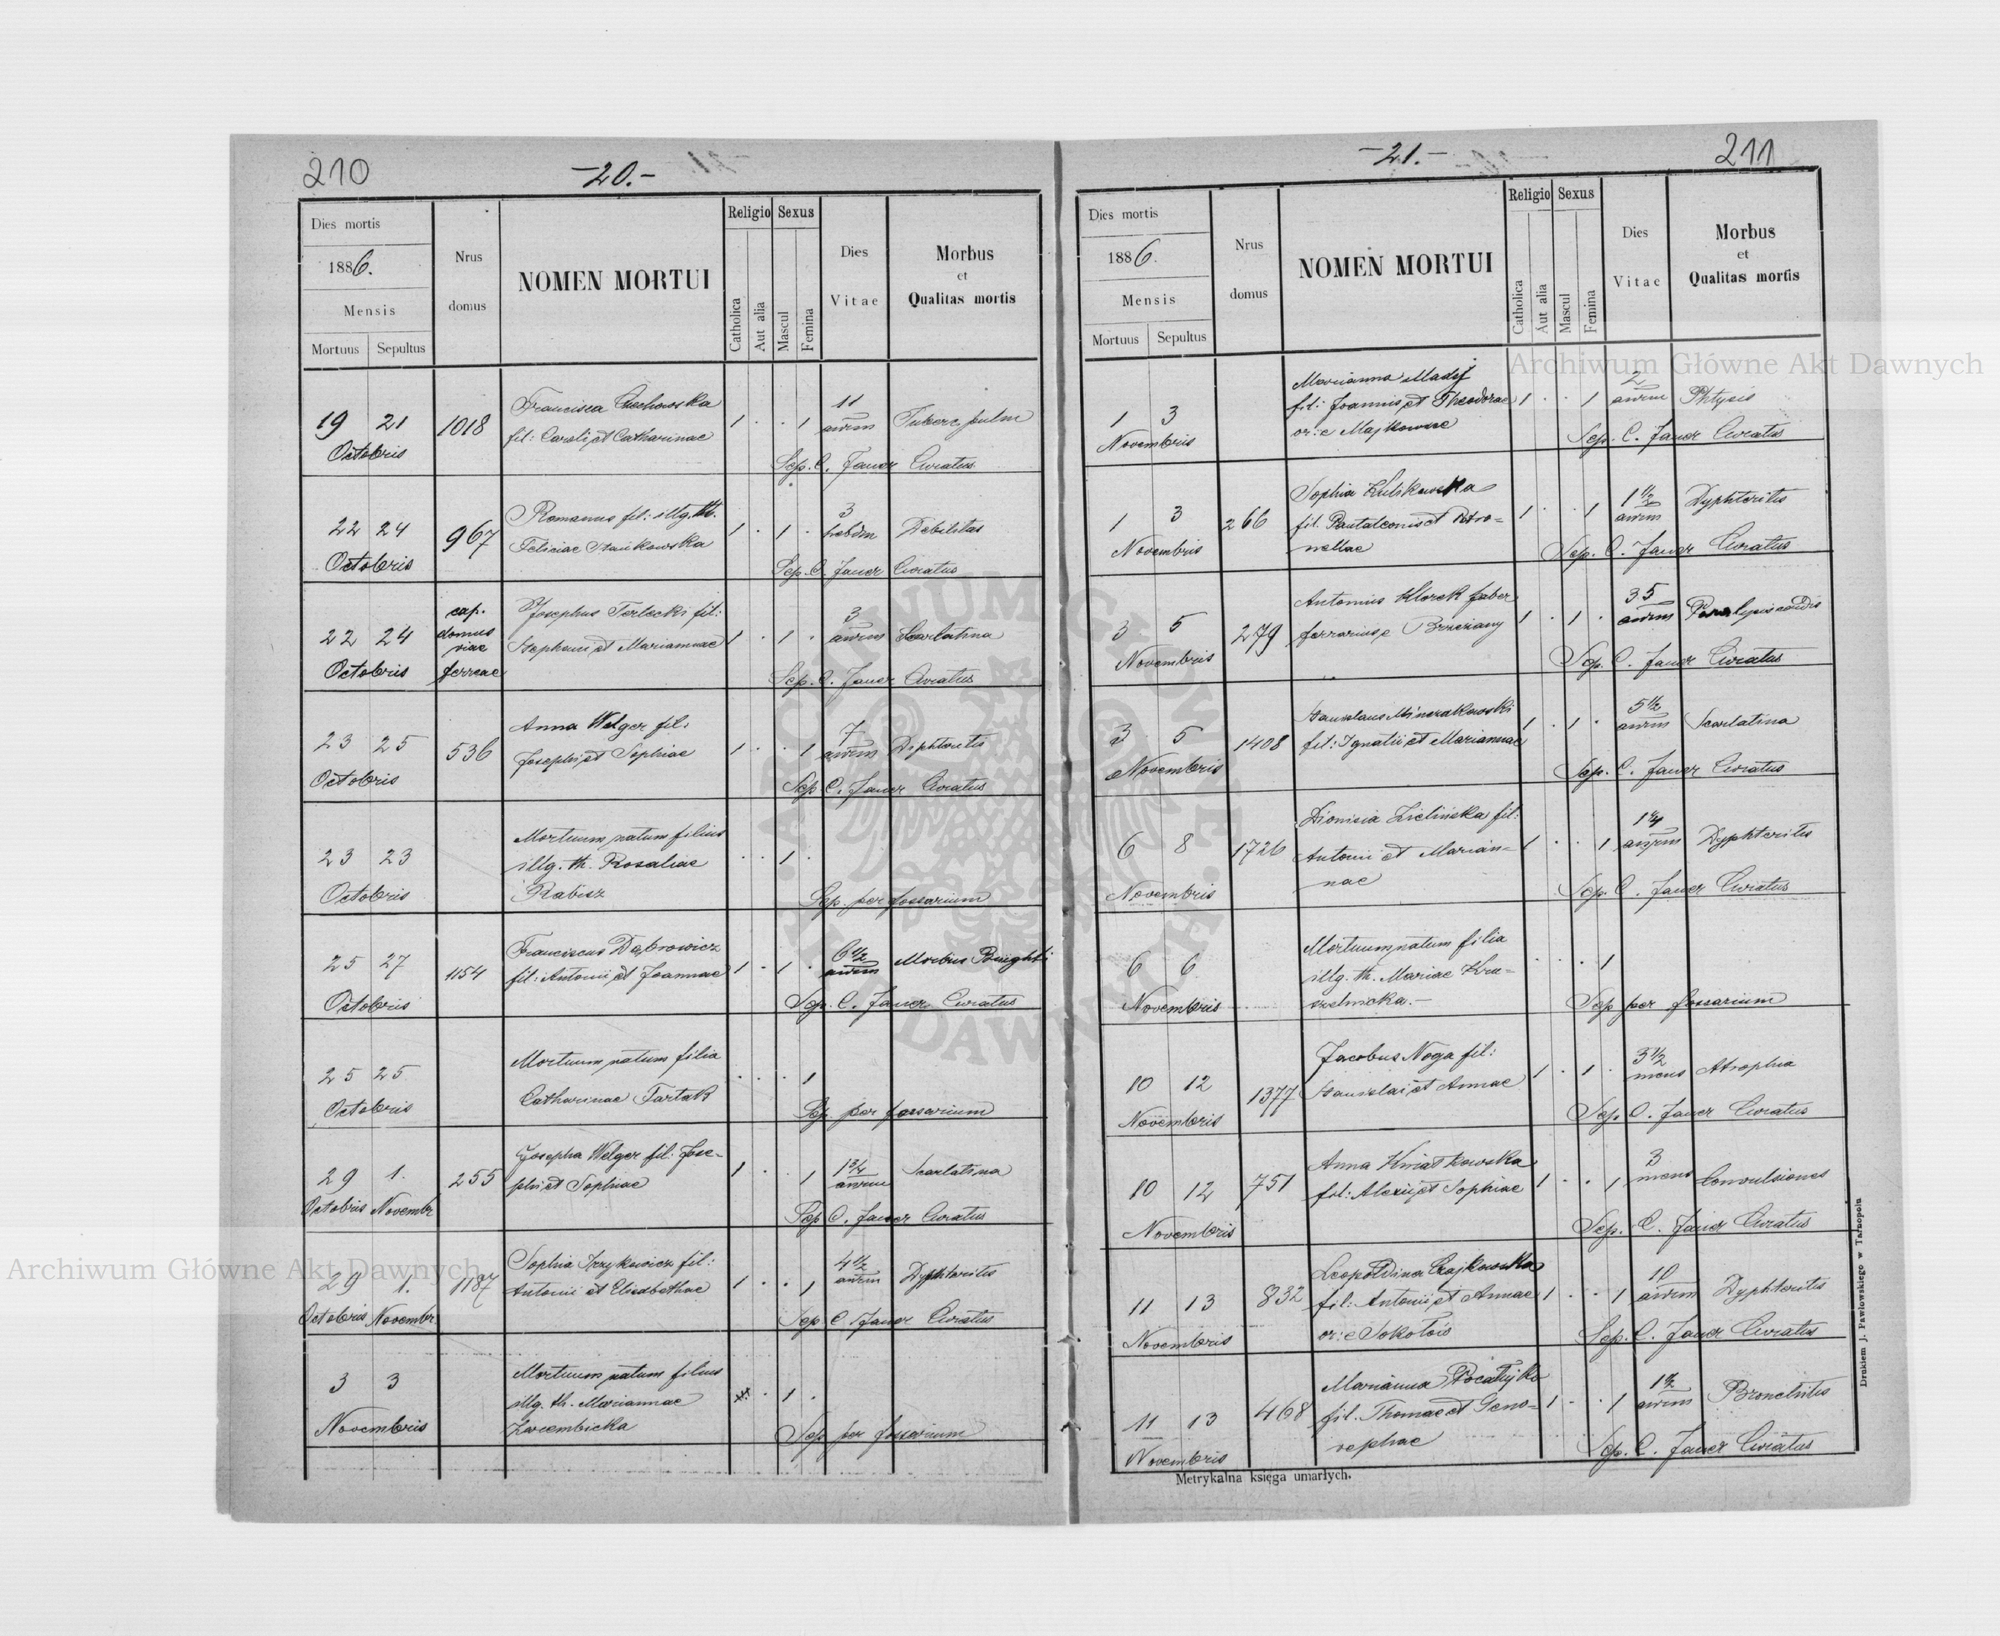 210
-20.-
Dies mortis
1886.
Mensis
Mortuus Sepultus
Nrus
domus
NOMEN MORTUI
Religio
Catholica
Aut alia
Sexus
Mascul
Femina
Dies
Vitae
Morbus
et
Qualitas mortis
19 21
Octobris
1018
Francisca
fil: Caroli et Catharinae
1 . . 1
11
annm
Tuberc. pulm
Sep. C. Jauer Curatus
22 24
Octobris
967
Romanus fil: illg. th.
Feliciae Stańkowska
1 . 1 .
3
hebdm
Debilitas
Sep. C. Jauer Curatus
22 24
Octobris
cap.
domus
viae
ferreae
Josephus Terlecki fil:
Stephani et Mariannae
1 . 1 .
3
annm
Scarlatina
Sep. C. Jauer Curatus
23 25
Octobris
536
Anna Welger fil:
Josephi et Sophiae
1 . . 1
7
annm
Diphteritis
Sep. C. Jauer Curatus
23 23
Octobris
Mortuum natum filius
illg. th. Rosaliae
Rabisz
. . 1 .
Sep. per fossarium
25 27
Octobris
1154
Franciscus Dąbrowicz
fil: Antonii et Joannae
1 . 1 .
6 1/2
annm
Morbus Brighti
Sep. C. Jauer Curatus
25 25
Octobris
Mortuum natum filia
Catharinae Tartak
. . . 1
Sep. per fossarium
29 1.
Octobris Novembr
255
Josepha Welger fil: Jose-
phi et Sophiae
1 . . 1
1 3/4
annm
Scarlatina
Sep C. Jauer Curatus
29 1.
Octobris Novembr.
1187
Sophia fil:
Antonii et Elisabethae
1 . . 1
4 1/2
annm
Dyphteritis
Sep C. Jauer Curatus
3 3
Novembris
Mortuum natum filius
illg. th. Mariannae
Zarembicka
. 1 .
Sep per fossarium
-21.-
211
Dies mortis
1886.
Mensis
Mortuus Sepultus
Nrus
domus
NOMEN MORTUI
Religio
Catholica
Aut alia
Sexus
Mascul
Femina
Dies
Vitae
Morbus
et
Qualitas mortis
1 3
Novembris
Marianna Madej
fil: Joannis et Theodorae
or: e Majkowce
1 . . 1
2
annm
Phtysis
Sep. C. Jauer Curatus
1 3
Novembris
266
Sophia Kulikowska
fil. Pantaleonis et Petro-
nellae
1 . . 1
1 1/2
annm
Dyphteritis
Sep. C. Jauer Curatus
3 5
Novembris
279
Antonius Klorek faber
ferrarius e Brzeżany
1 . 1 .
35
annm
Paralysis cordis
Sep. C. Jauer Curatus
3 5
Novembris
1408
Stanislaus Minczakowski
fil: Ignatii et Mariannae
1 . 1 .
5 1/2
annm
Scarlatina
Sep. C. Jauer Curatus
6 8
Novembris
1726
Dionisia Zielińska fil:
Antonii et Marian-
nae
1 . . 1
1 1/4
annm
Dyphteritis
Sep. C. Jauer Curatus
6 6
Novembris
Mortuum natum filia
illg. th. Mariae Kru-
szelnicka.-
. . . 1
Sep per fossarium
10 12
Novembris
1377
Jacobus Noga fil:
Stanislai et Annae
1 . 1 .
3 1/2
mens
Atrophia
Sep. C. Jauer Curatus
10 12
Novembris
751
Anna Kwiatkowska
fil: Alexii et Sophiae
1 . . 1
3
mens
Convulsiones
Sep. C. Jauer Curatus
11 13
Novembris
832
Leopoldina Czajkowska
fil: Antonii et Annae
or: e
1 . . 1
10
annm
Dyphteritis
Sep. C. Jauer Curatus
11 13
Novembris
468
Marianna
fil. Thomae et Geno-
vephae
1 . . 1
1 1/2
annm
Bronchitis
Sep. C. Jauer Curatus
Metrykalna księga umarłych.
Drukiem J. Pawłowskiego w Tarnopolu
Archiwum Główne Akt Dawnych
Archiwum Główne Akt Dawnych